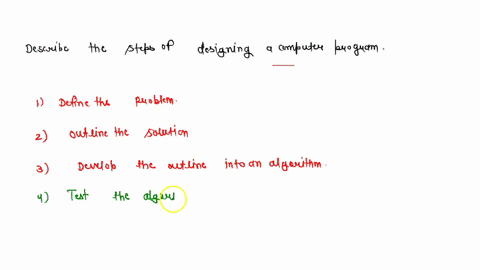 Describe the steps of designing a computer program.
1) Define the problem.
2) Outline the solution
3) Develop the outline into an algorithm.
4) Test the algori